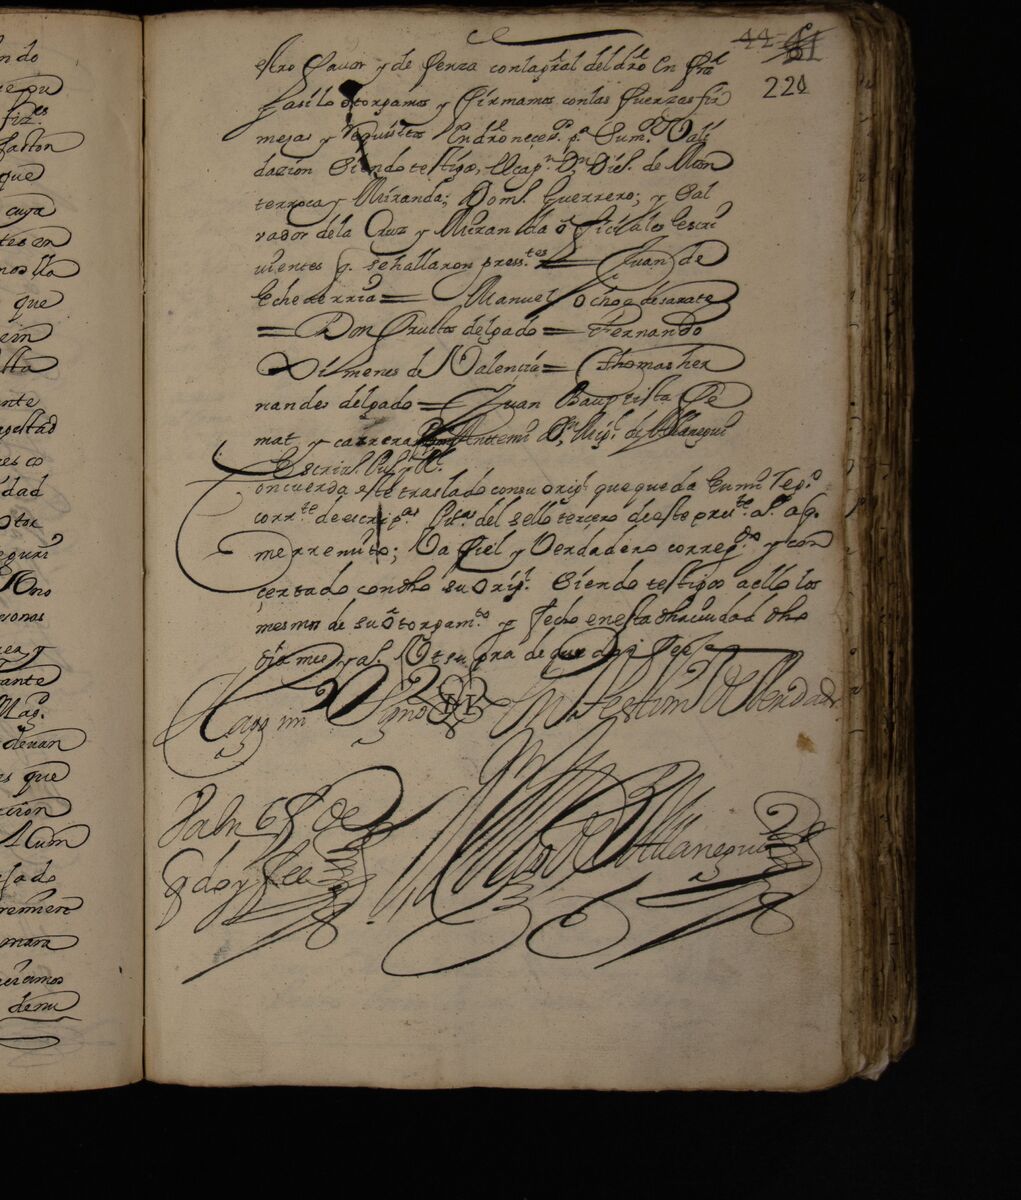 44
221
estro favor y defenza con la gral del dro en fora
y asi lo otorgamos y firmamos con las fuerzas fir
mezas y requisitos en dro neces.os p.a su m.or vali
dacion siendo testigos, el cap.n D.n Diº. de Mon
terroca y Miranda; Dom.o Guerrero; y Sal
vador de la Cruz y Miranda ofiçiales escri
uientes q. se hallaron press.tes = Juan de
Echeverria = Manuel ochoa de sarate
= Don fruttos delgado = Fernando
Ximenes de Valencia = Thomas her
nandes delgado = Juan Bauptista Re
mat y carrera Antemi D.n Mig.l de
Escriu.o Pub.co y R.l
Concuerda este traslado con su orig.l que queda en mi reg.o
corr.te de escrip.as pu.cas del sello tercero de este pres.te a.o a q.
me rremito; Va fiel y verdadero correg.do y con
certado con dho su orig.l siendo testigos a ello los
mesmos de su otorgam.to y fecho en esta dha ciudad dho
dia mes y a.o Vt supra de que doy fee
Hago mi Signo En testim.o de Verdad
de
q doy fee